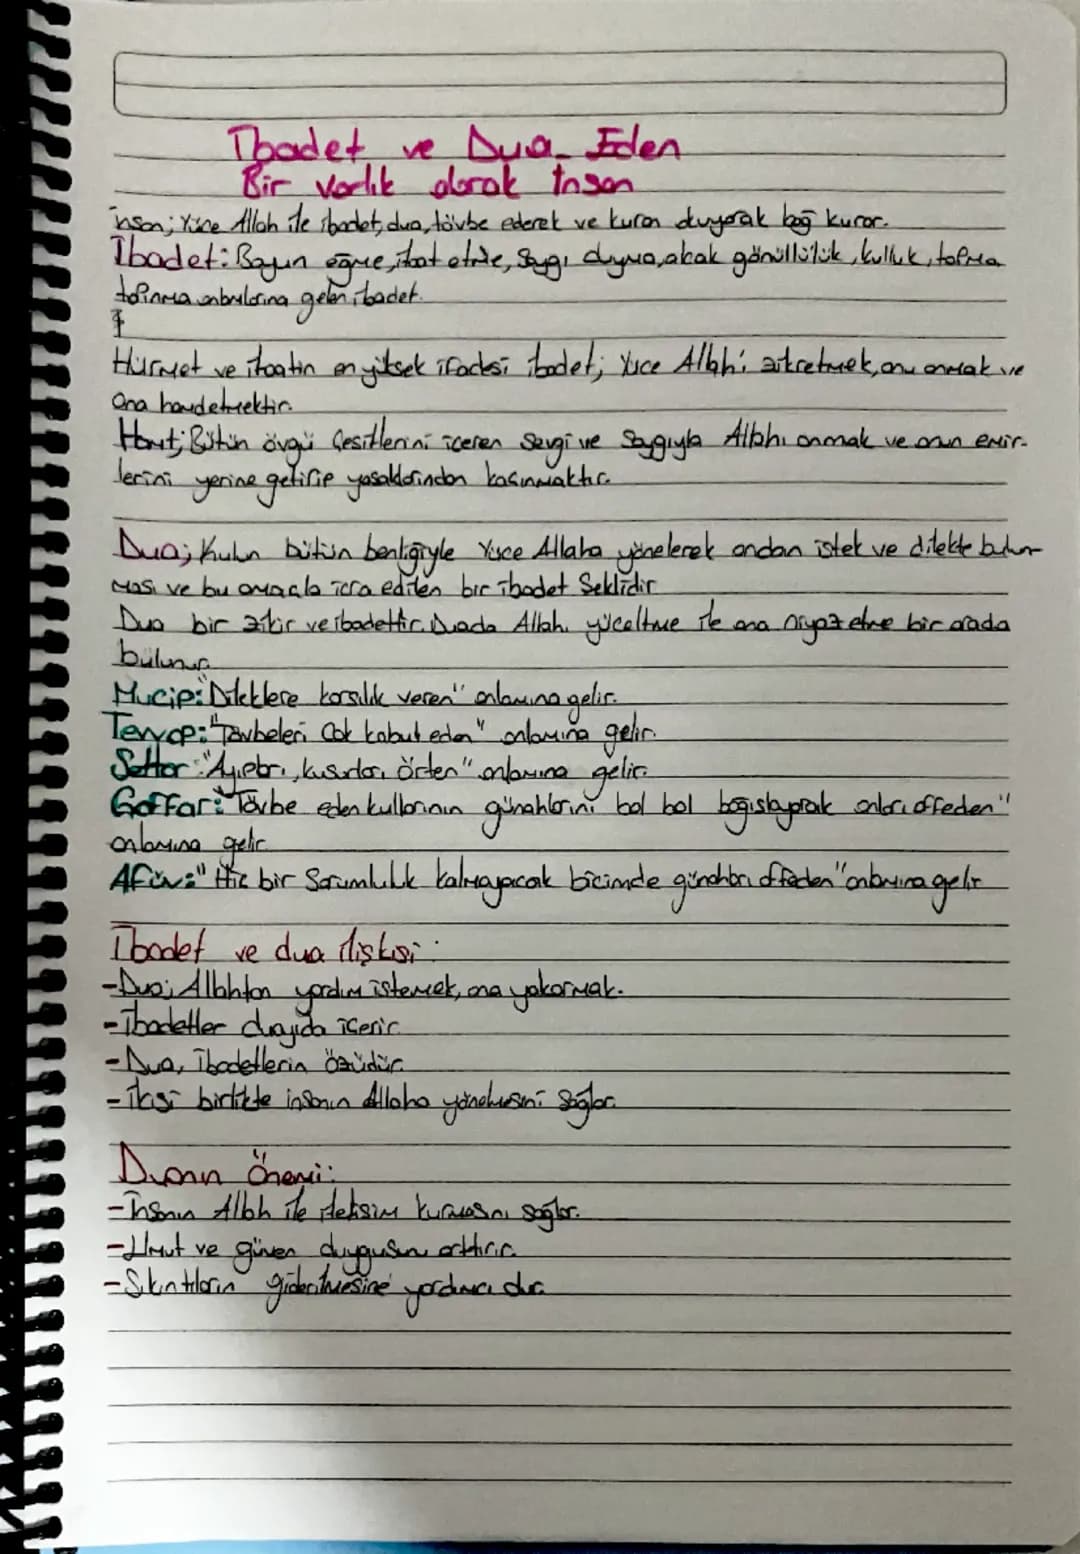 İbadet ve Dua Eden
Bir Varlık olarak İnsan
insan; Yüce Allah ile ibadet, dua, tövbe ederek ve kuran duyarak bağ kurar.
İbadet: Boyun eğme, itaat etme, Saygı duyma, alçak gönüllülük, kulluk, tapma
tapınma anlamlarına gelen ibadet.
Hürmet ve itaatin en yüksek ifadesi ibadet; Yüce Allah'ı zikretmek, onu anmak ve
Ona hamdetmektir.
Hamt; Bütün övgü Çeşitlerini içeren Sevgi ve Saygıyla Allahı anmak ve onun emir-
lerini yerine getirip yasaklarından kaçınmaktır.
Dua; Kulun bütün benliğiyle Yüce Allaha yönelerek ondan istek ve dilekte bulun-
ması ve bu amaçla icra edilen bir ibadet Şeklidir
Dua bir zikir ve ibadettir. Duada Allahı yüceltme ile ona niyaz etme bir arada
bulunur.
Mucip: Dileklere karşılık veren" anlamına gelir.
Tevvap: "Tövbeleri Çok kabul eden" anlamına gelir.
Settar: "Ayıpları, kusurları örten" anlamına gelir.
Gaffar: "Tövbe eden kullarının günahlarını bol bol bağışlayarak onları affeden"
anlamına gelir
Afüv: "Hiç bir Sorumluluk kalmayacak biçimde günahları affeden" anlamına gelir
İbadet ve dua ilişkisi:
-Dua; Allahtan yardım istemek, ona yakarmak.
-İbadetler duayıda içerir.
-Dua, ibadetlerin özüdür.
-ikisi birlikte insanın Allaha yönelmesini Sağlar.
Duanın Önemi:
-İnsanın Allah ile iletişim kurmasını sağlar.
-Umut ve güven duygusunu arttırır.
-Sıkıntıların giderilmesine yardımcı olur.